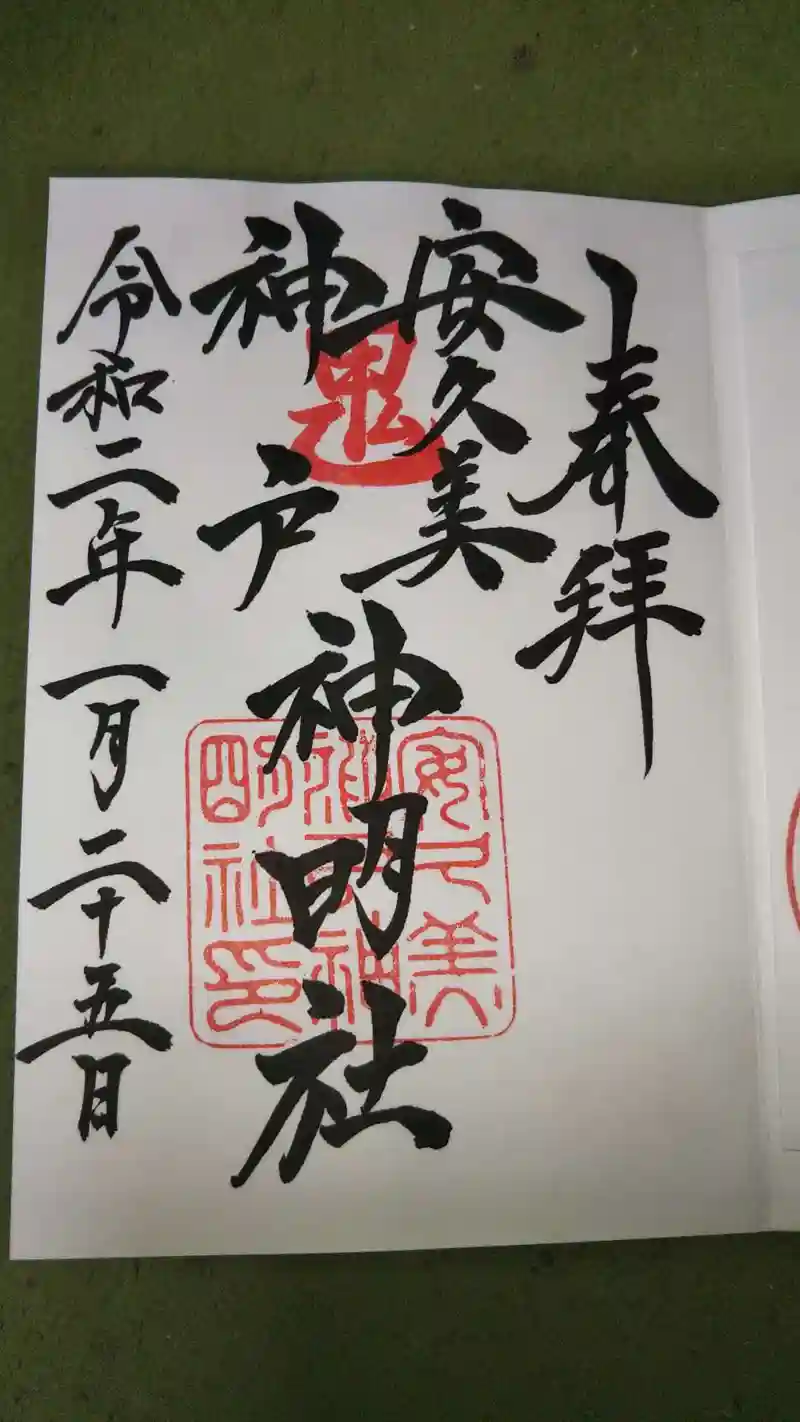 奉拝
安久美
神戸
神明社
鬼
安久美
神戸神
明社印
令和二年一月二十五日